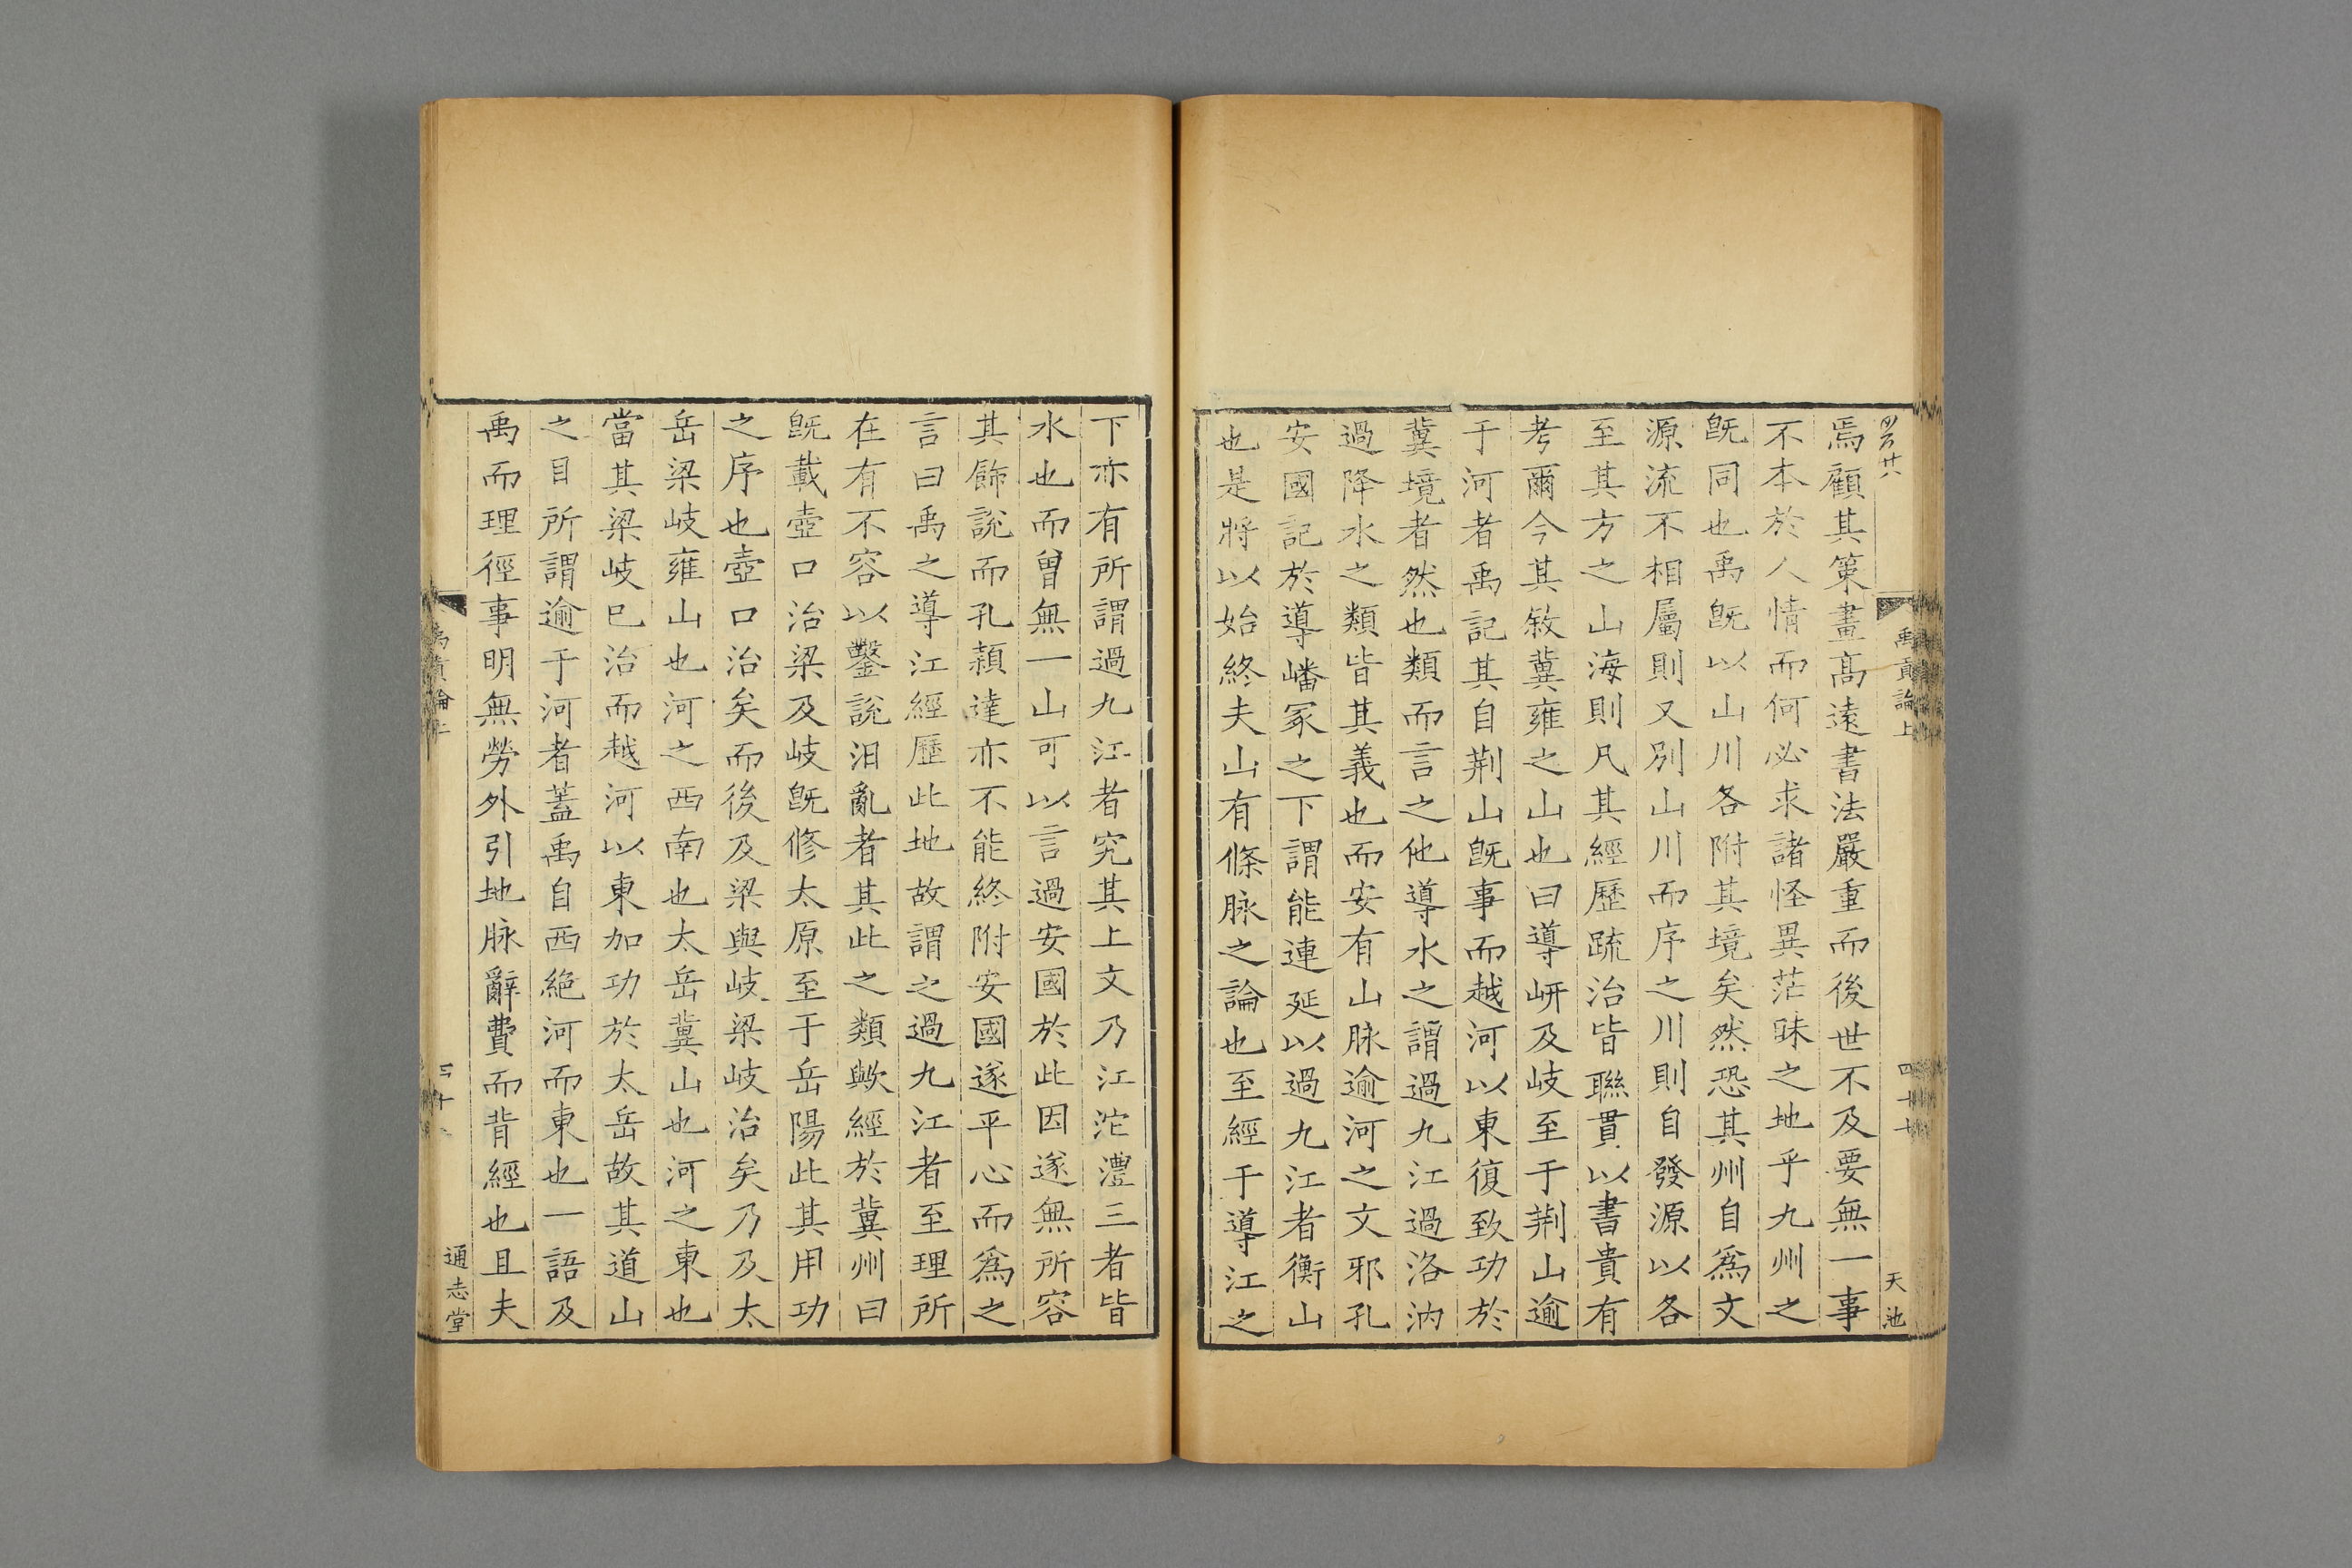 禹貢論上
四十七
天池
焉顧其策畫髙遠書法嚴重而後世不及要無一事
不本於人情而何必求諸怪異茫昧之地乎九州之
既同也禹既以山川各附其境矣然恐其州自爲文
源流不相屬則又别山川而序之川則自發源以各
至其方之山海則凡其經歷疏治皆聯貫以書貴有
考爾今其敘冀雍之山也曰導岍及岐至于荆山逾
于河者禹記其自荆山既事而越河以東復致功於
冀境者然也類而言之他導水之謂過九江過洛汭
過降水之類皆其義也而安有山脉逾河之文邪孔
安國記於導嶓冢之下謂能連延以過九江者衡山
也是將以始終夫山有條脉之論也至經于導江之
下亦有所謂過九江者究其上文乃江沱澧三者皆
水也而曽無一山可以言過安國於此因遂無所容
其飾說而孔潁達亦不能終附安國遂平心而爲之
言曰禹之導江經歷此地故謂之過九江者至理所
在有不容以鑿說汨亂者其此之類歟經於冀州曰
既載壺口治梁及岐既修太原至于岳陽此其用功
之序也壺口治矣而後及梁與岐梁岐治矣乃及太
岳梁岐雍山也河之西南也太岳冀山也河之東也
當其梁岐已治而越河以東加功於太岳故其道山
之目所謂逾于河者蓋禹自西絶河而東也一語及
禹而理徑事明無勞外引地脉辭費而背經也且夫
禹貢論上
通志堂